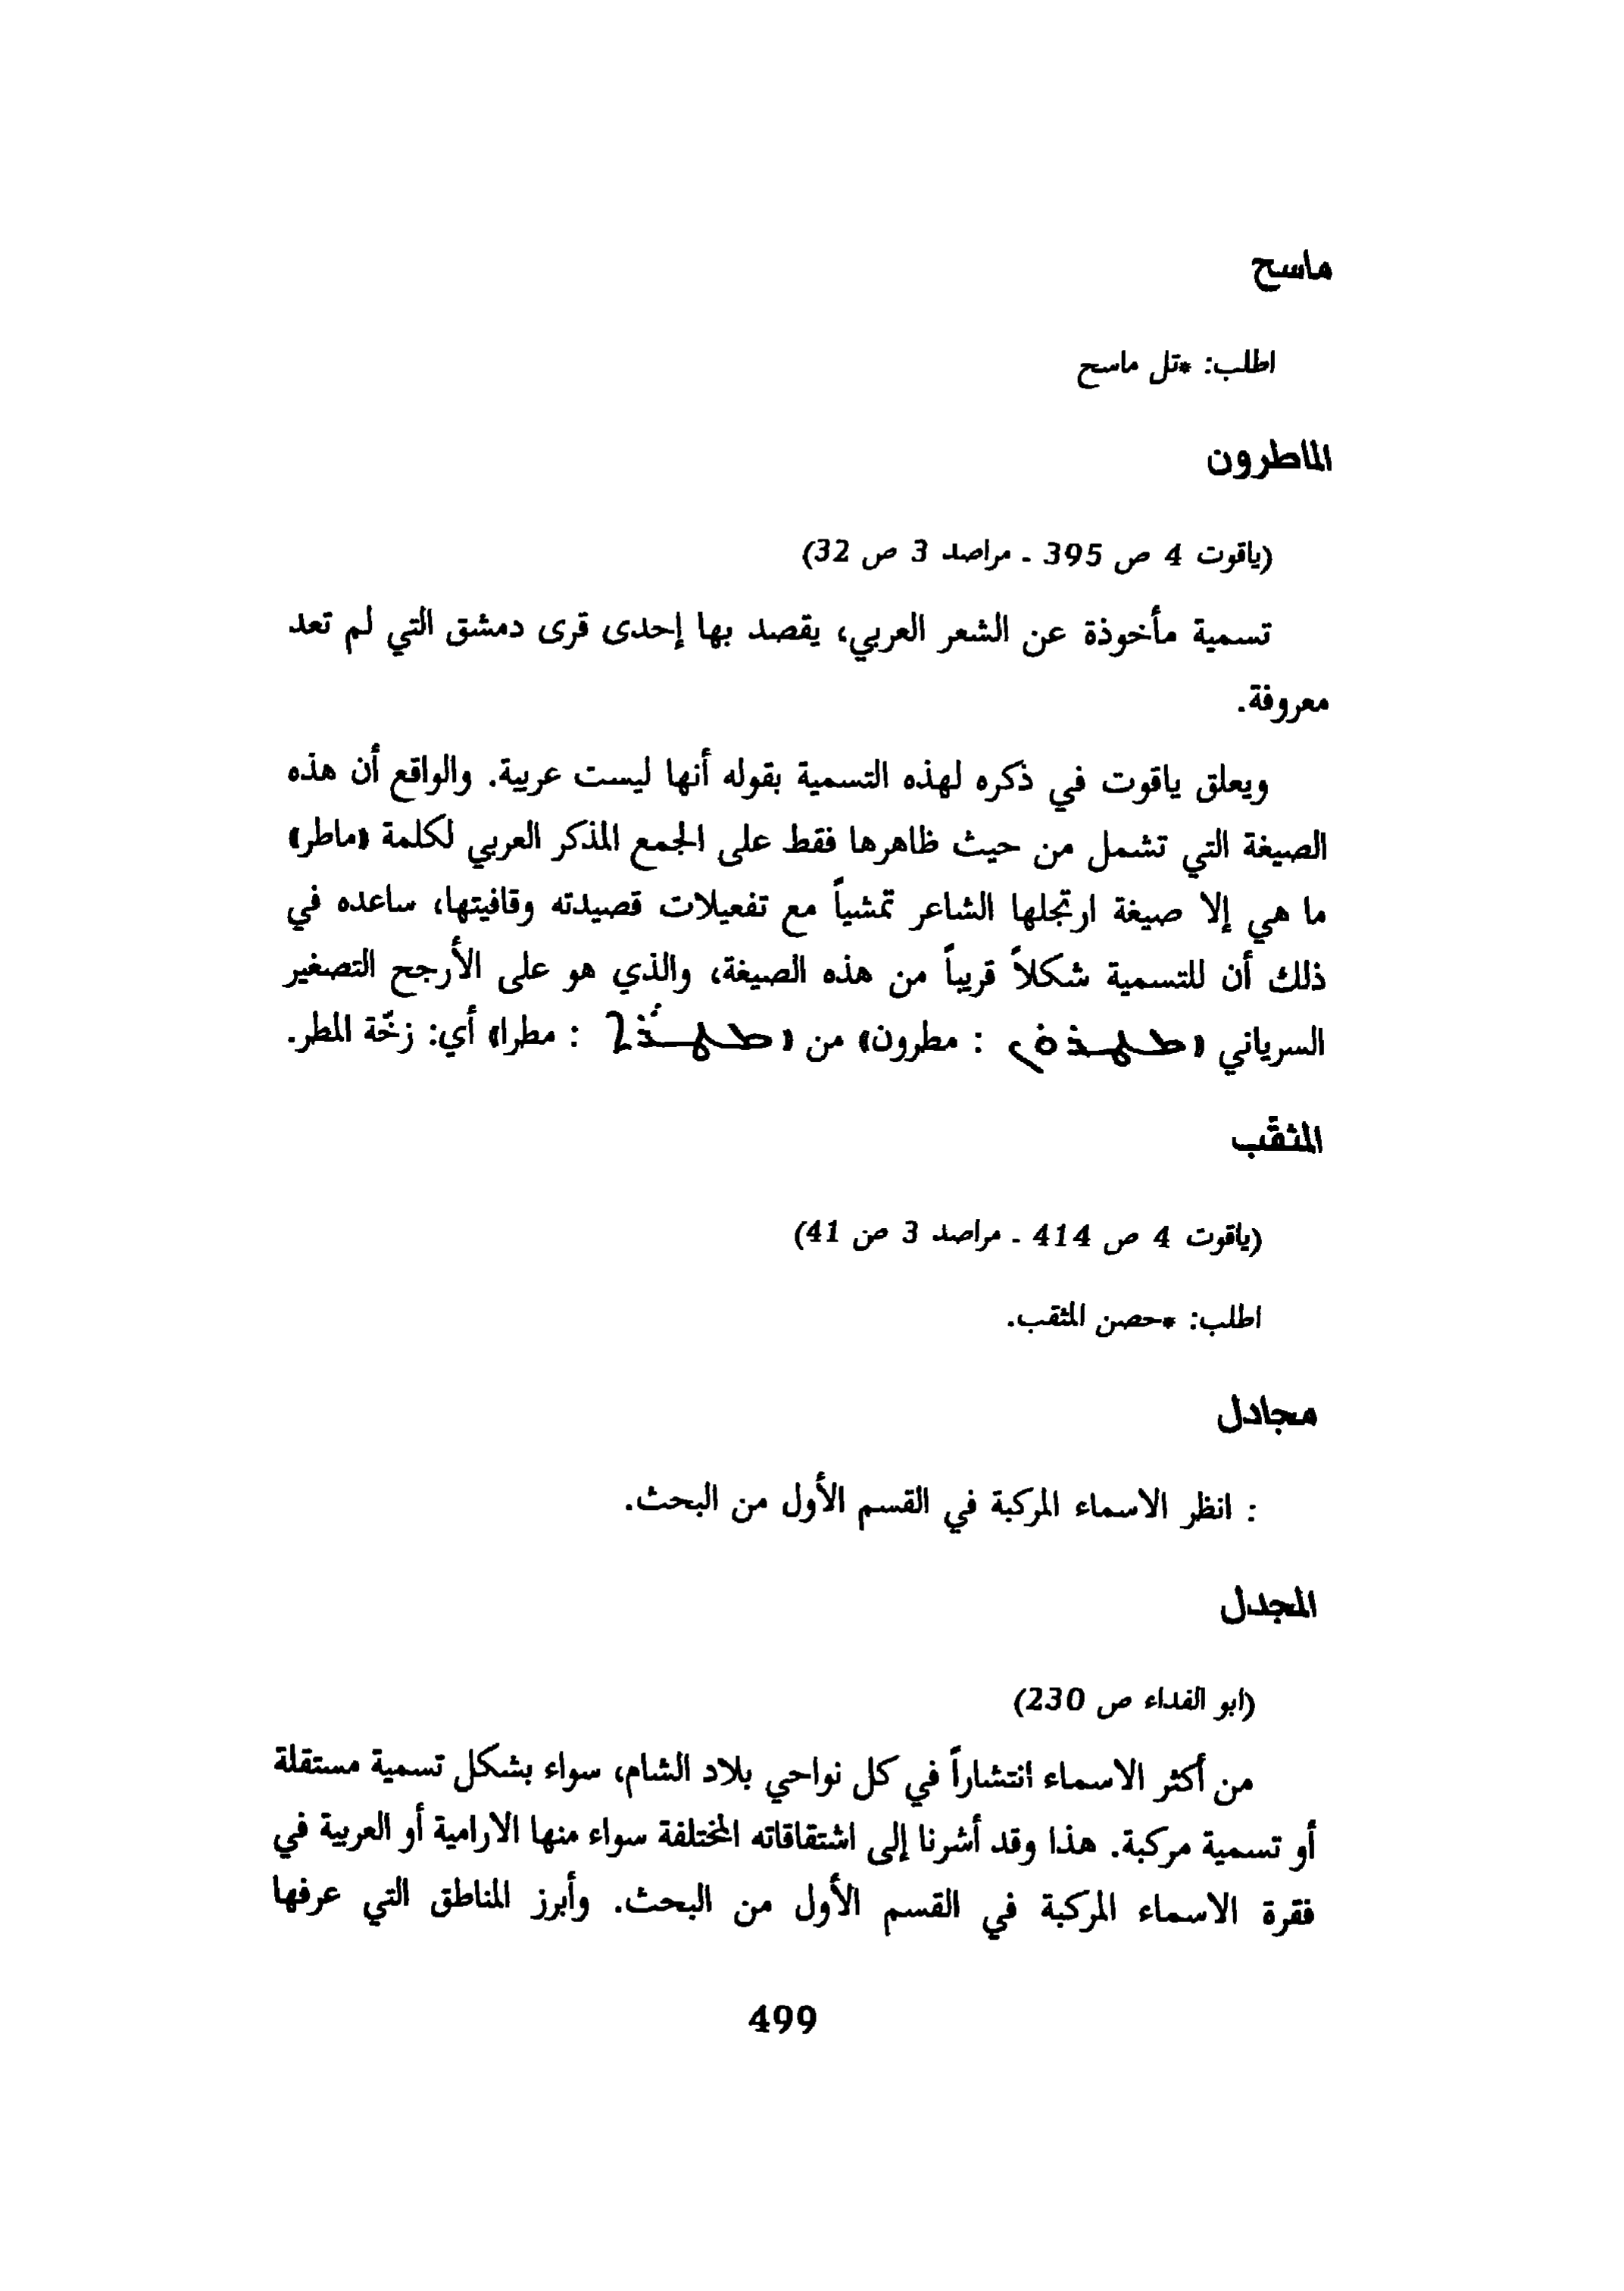 ماسح
اطلب: *تل ماسح
الماطرون
(ياقوت 4 ص 395 - مراصد 3 ص 32)
تسمية مأخوذة عن الشعر العربي، يقصد بها إحدى قرى دمشق التي لم تعد
معروفة.
ويعلق ياقوت في ذكره لهذه التسمية بقوله أنها ليست عربية. والواقع أن هذه
الصيغة التي تشمل من حيث ظاهرها فقط على الجمع المذكر العربي لكلمة «ماطر»
ما هي إلا صيغة ارتجلها الشاعر تمشياً مع تفعيلات قصيدته وقافيتها، ساعده في
ذلك أن للتسمية شكلاً قريباً من هذه الصيغة، والذي هو على الأرجح التصغير
السرياني «ܡܛܪܘܢ : مطرون» من «ܡܛܪܐ : مطرا» أي: زخّة المطر.
المثقب
(ياقوت 4 ص 414 - مراصد 3 ص 41)
اطلب: *حصن المثقب.
مجادل
: انظر الاسماء المركبة في القسم الأول من البحث.
المجدل
(ابو الفداء ص 230)
من أكثر الاسماء انتشاراً في كل نواحي بلاد الشام، سواء بشكل تسمية مستقلة
أو تسمية مركبة. هذا وقد أشرنا إلى اشتقاقاته المختلفة سواء منها الارامية أو العربية في
فقرة الاسماء المركبة في القسم الأول من البحث. وأبرز المناطق التي عرفها
499